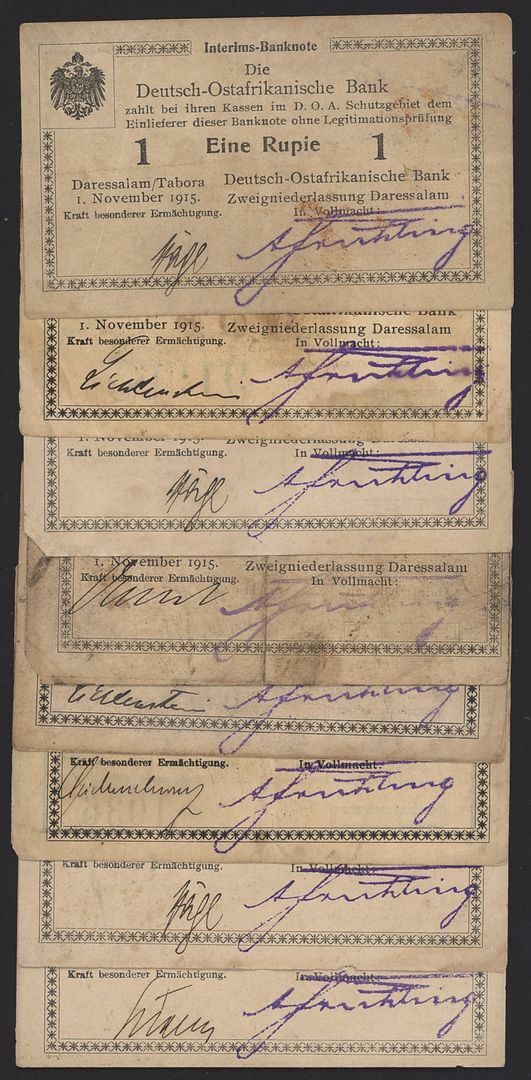 Interims-Banknote
Die
Deutsch-Ostafrikanische Bank
zahlt bei ihren Kassen im D. O. A. Schutzgebiet dem
Einlieferer dieser Banknote ohne Legitimationsprüfung
1 Eine Rupie 1
Daressalam/Tabora Deutsch-Ostafrikanische Bank
1. November 1915. Zweigniederlassung Daressalam
Kraft besonderer Ermächtigung. In Vollmacht:
A Frühling
Deutsch-Ostafrikanische Bank
1. November 1915. Zweigniederlassung Daressalam
Kraft besonderer Ermächtigung. In Vollmacht:
Lichtenstein A Frühling
1. November 1915. Zweigniederlassung Daressalam
Kraft besonderer Ermächtigung. In Vollmacht:
A Frühling
1. November 1915. Zweigniederlassung Daressalam
Kraft besonderer Ermächtigung. In Vollmacht:
A Frühling
Lichtenstein A Frühling
Kraft besonderer Ermächtigung. In Vollmacht:
A Frühling
Kraft besonderer Ermächtigung. In Vollmacht:
A Frühling
Kraft besonderer Ermächtigung. In Vollmacht:
A Frühling